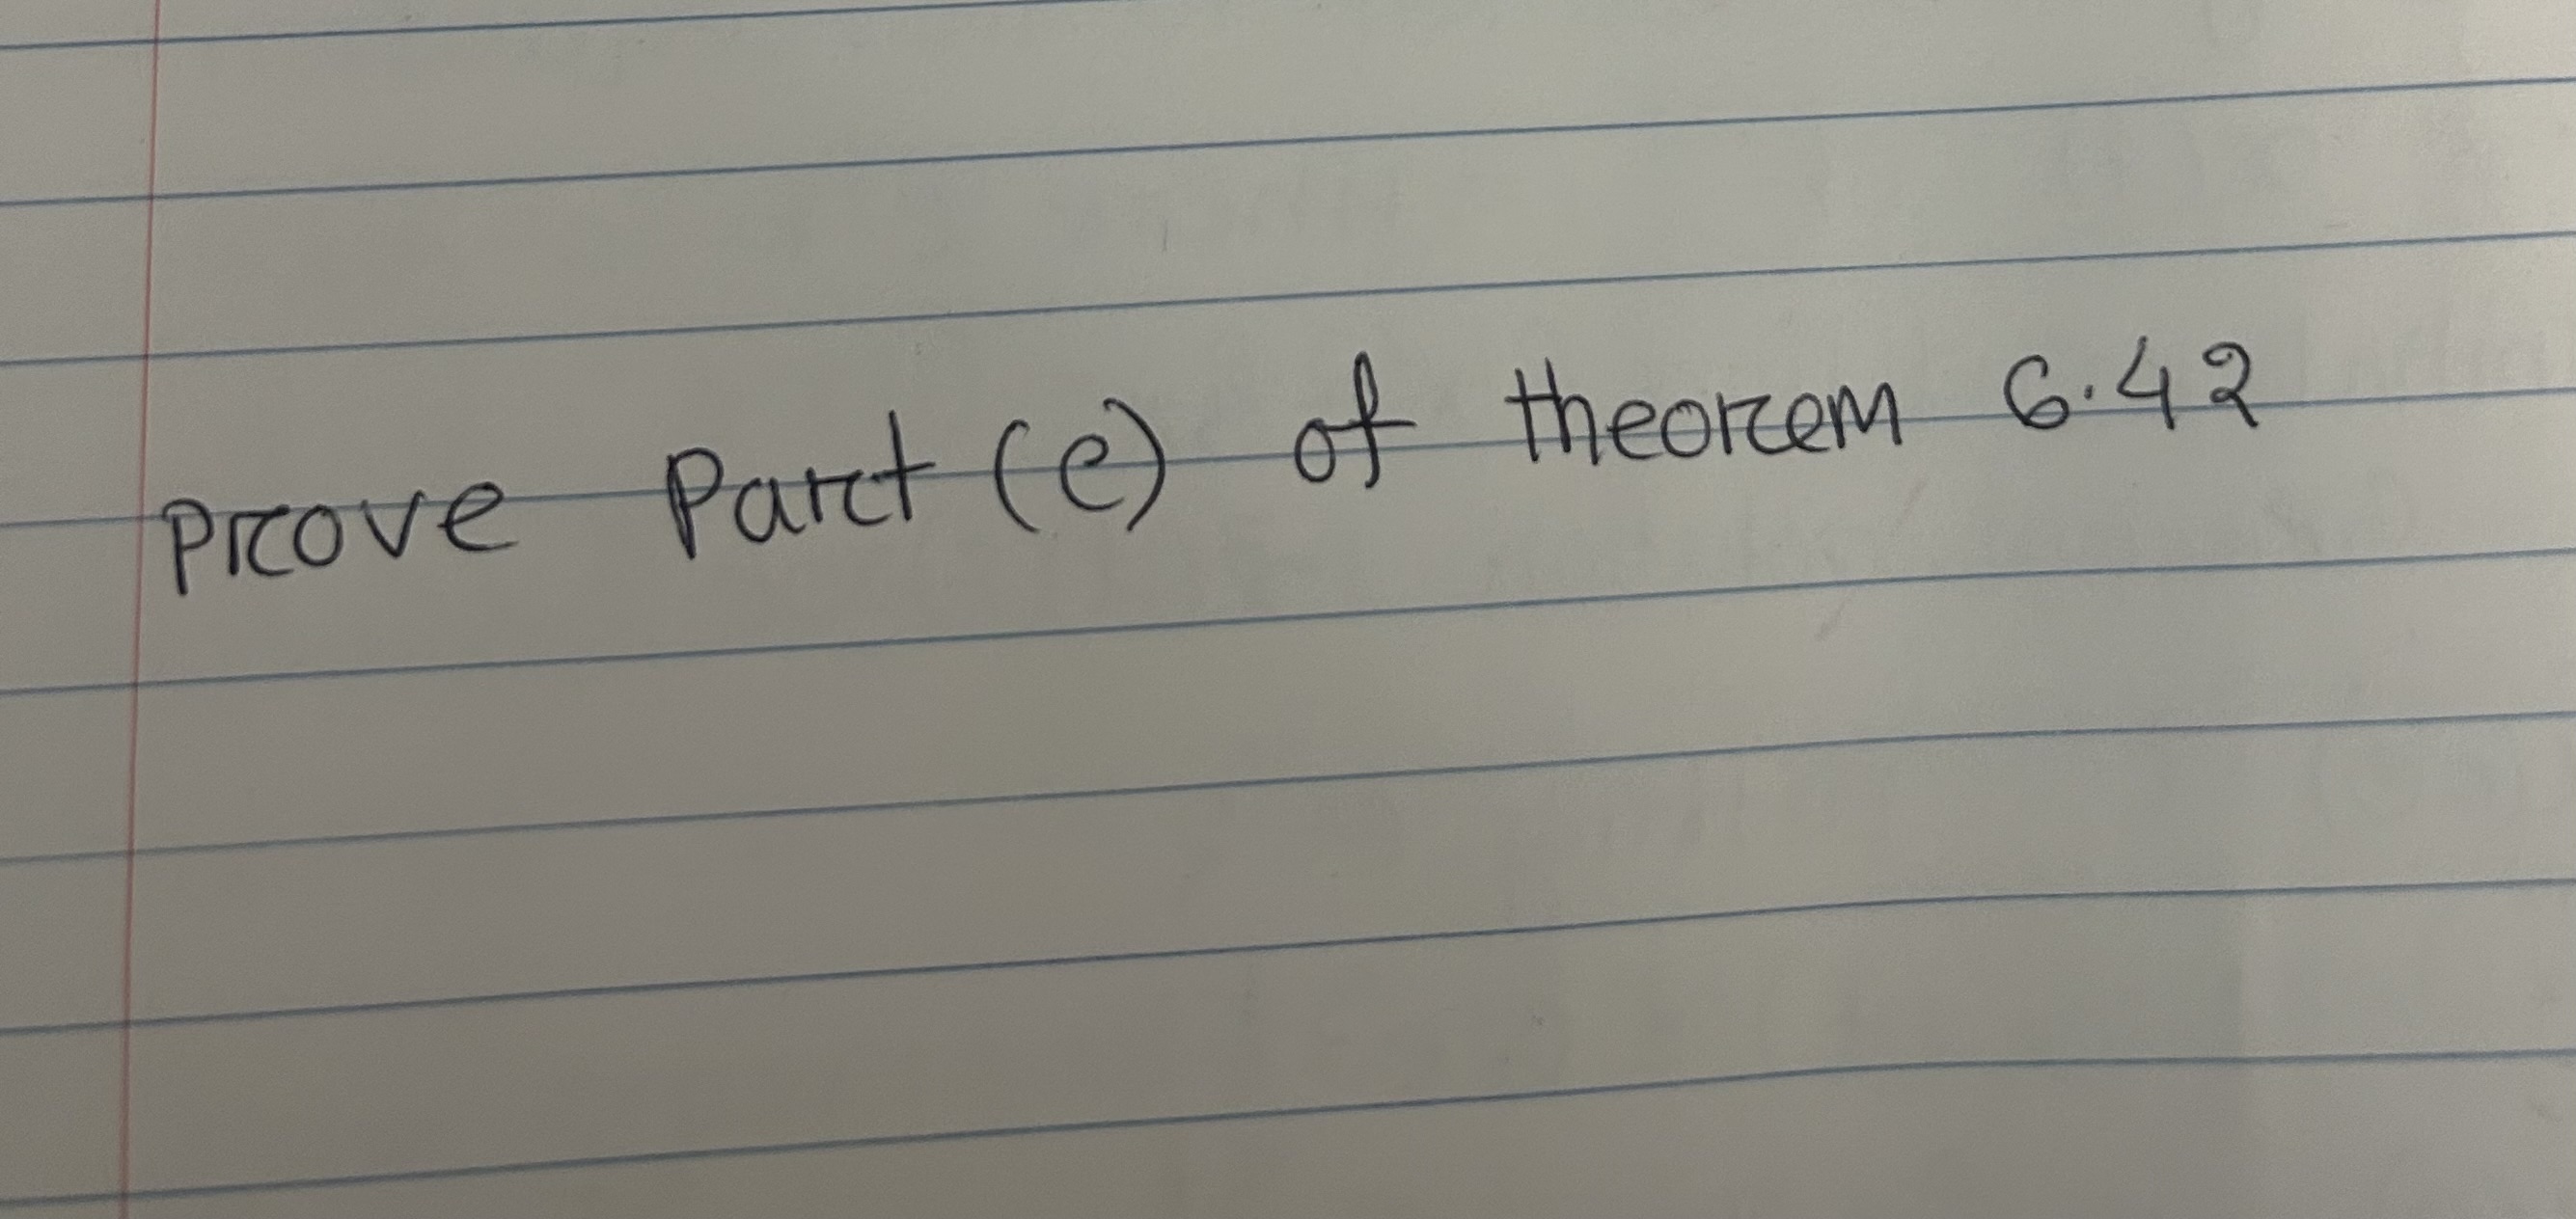 Prove Part (e) of theorem 6.42